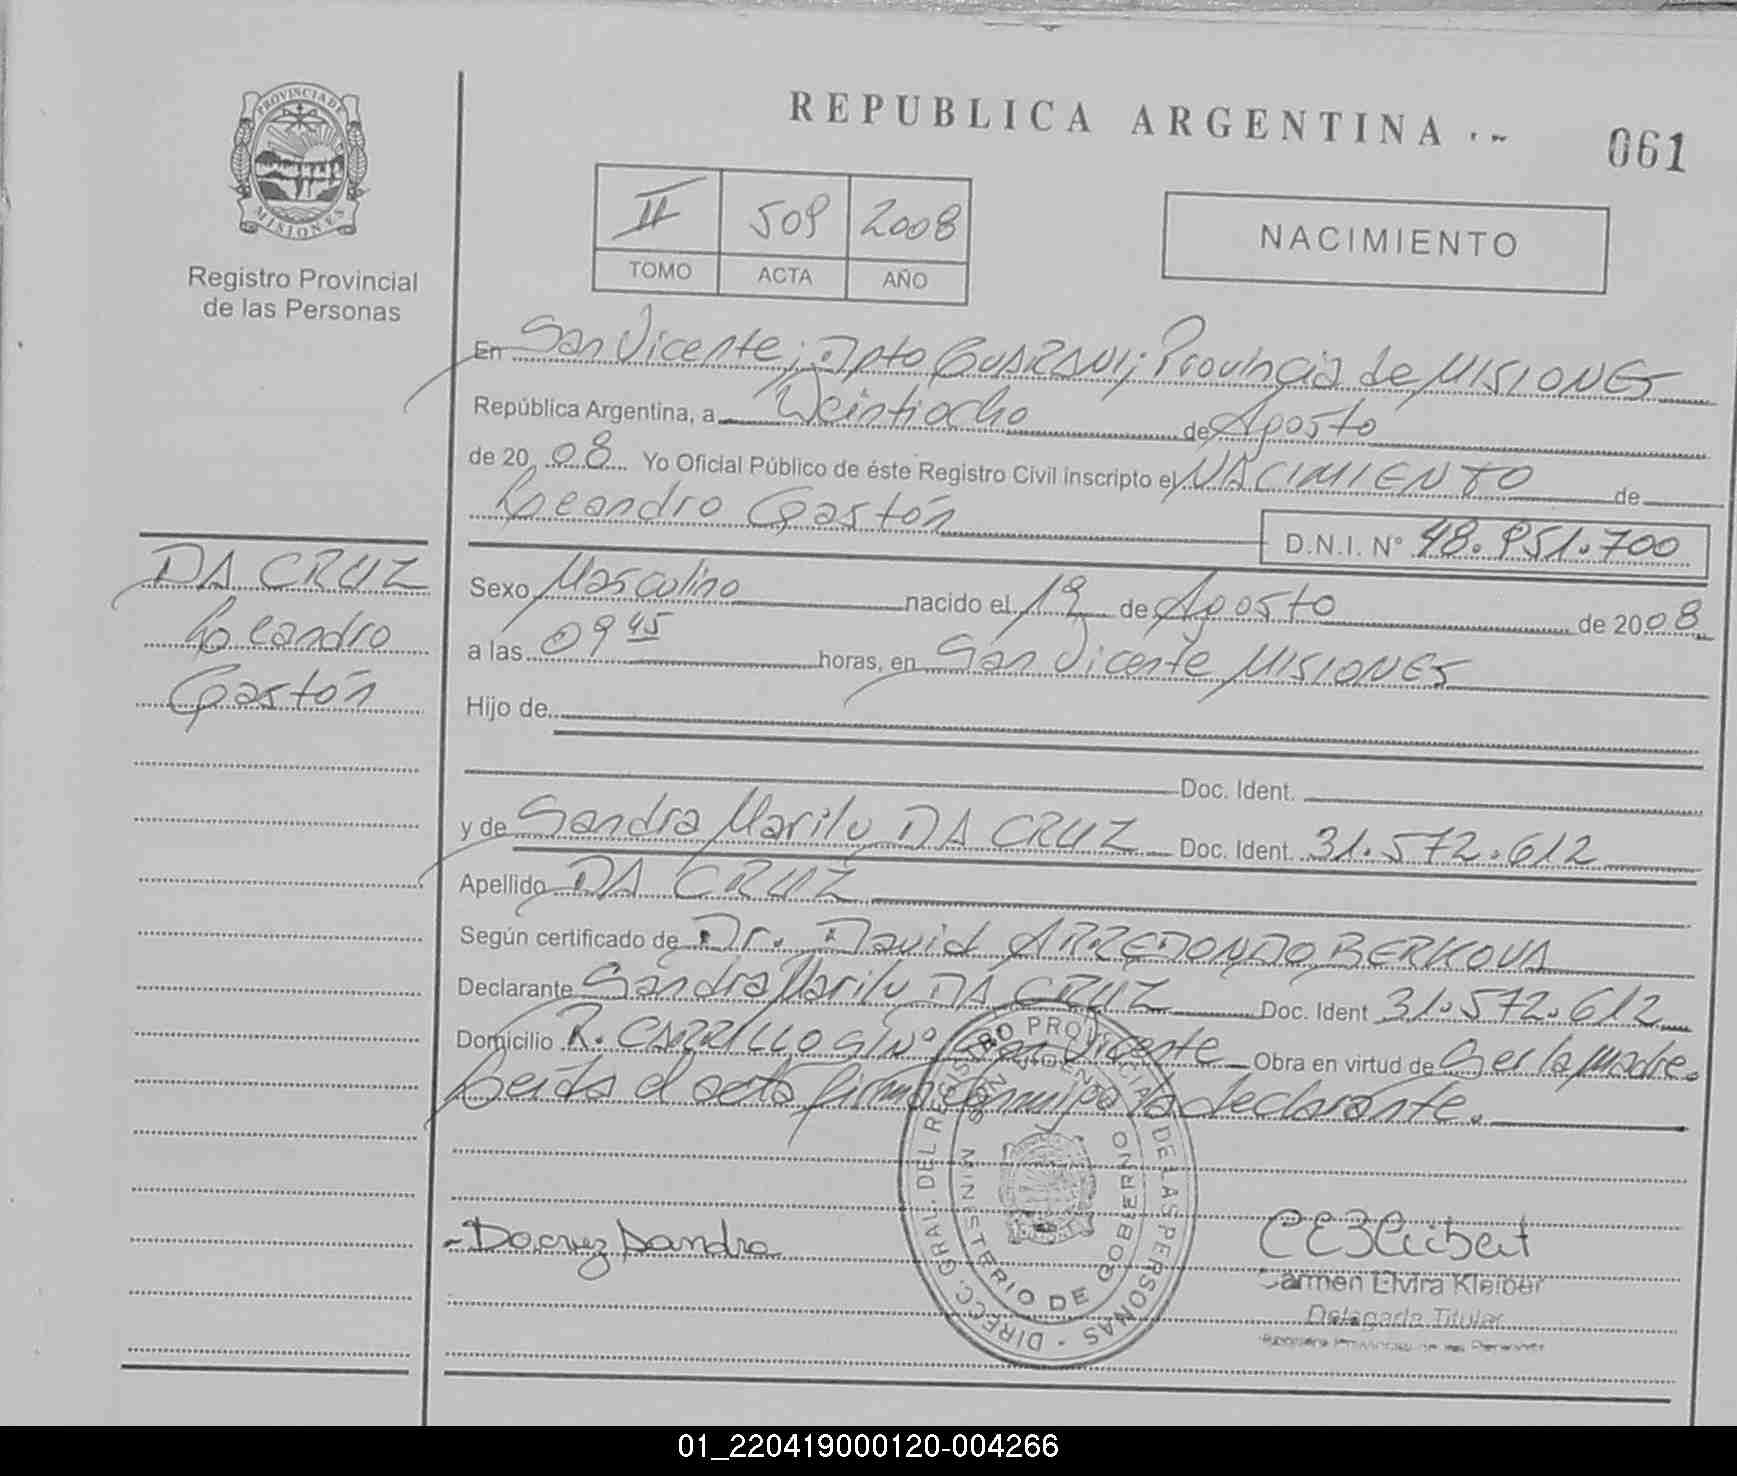 REPUBLICA ARGENTINA
061
PROVINCIA DE MISIONES
Registro Provincial
de las Personas
II 509 2008
TOMO ACTA AÑO
NACIMIENTO
En San Vicente, Dpto GUARANI; Provincia de MISIONES
República Argentina, a Veintiocho de Agosto
de 2008 Yo Oficial Público de éste Registro Civil inscripto el NACIMIENTO de
Leandro Gastón
D.N.I. N° 48.851.700
DA CRUZ
Leandro
Gastón
Sexo Masculino nacido el 19 de Agosto de 2008
a las 09 45 horas, en San Vicente MISIONES
Hijo de
Doc. Ident.
y de Sandra Marilu DA CRUZ Doc. Ident. 31.572.612
Apellido DA CRUZ
Según certificado de Dr. David ARREDONDO BERKOVA
Declarante Sandra Marilu DA CRUZ Doc. Ident 31.572.612
Domicilio R. CARRILLO S/N° San Vicente Obra en virtud de Ser la madre.
Leida el acta firma conmigo la declarante.
DIRECC. GRAL. DEL REGISTRO PROVINCIAL DE LAS PERSONAS -
SAN VICENTE
MINISTERIO DE GOBIERNO
Dacruz Sandra
Carmen Elvira Kleiber
Delegada Titular
Registro Provincial de las Personas
01_220419000120-004266